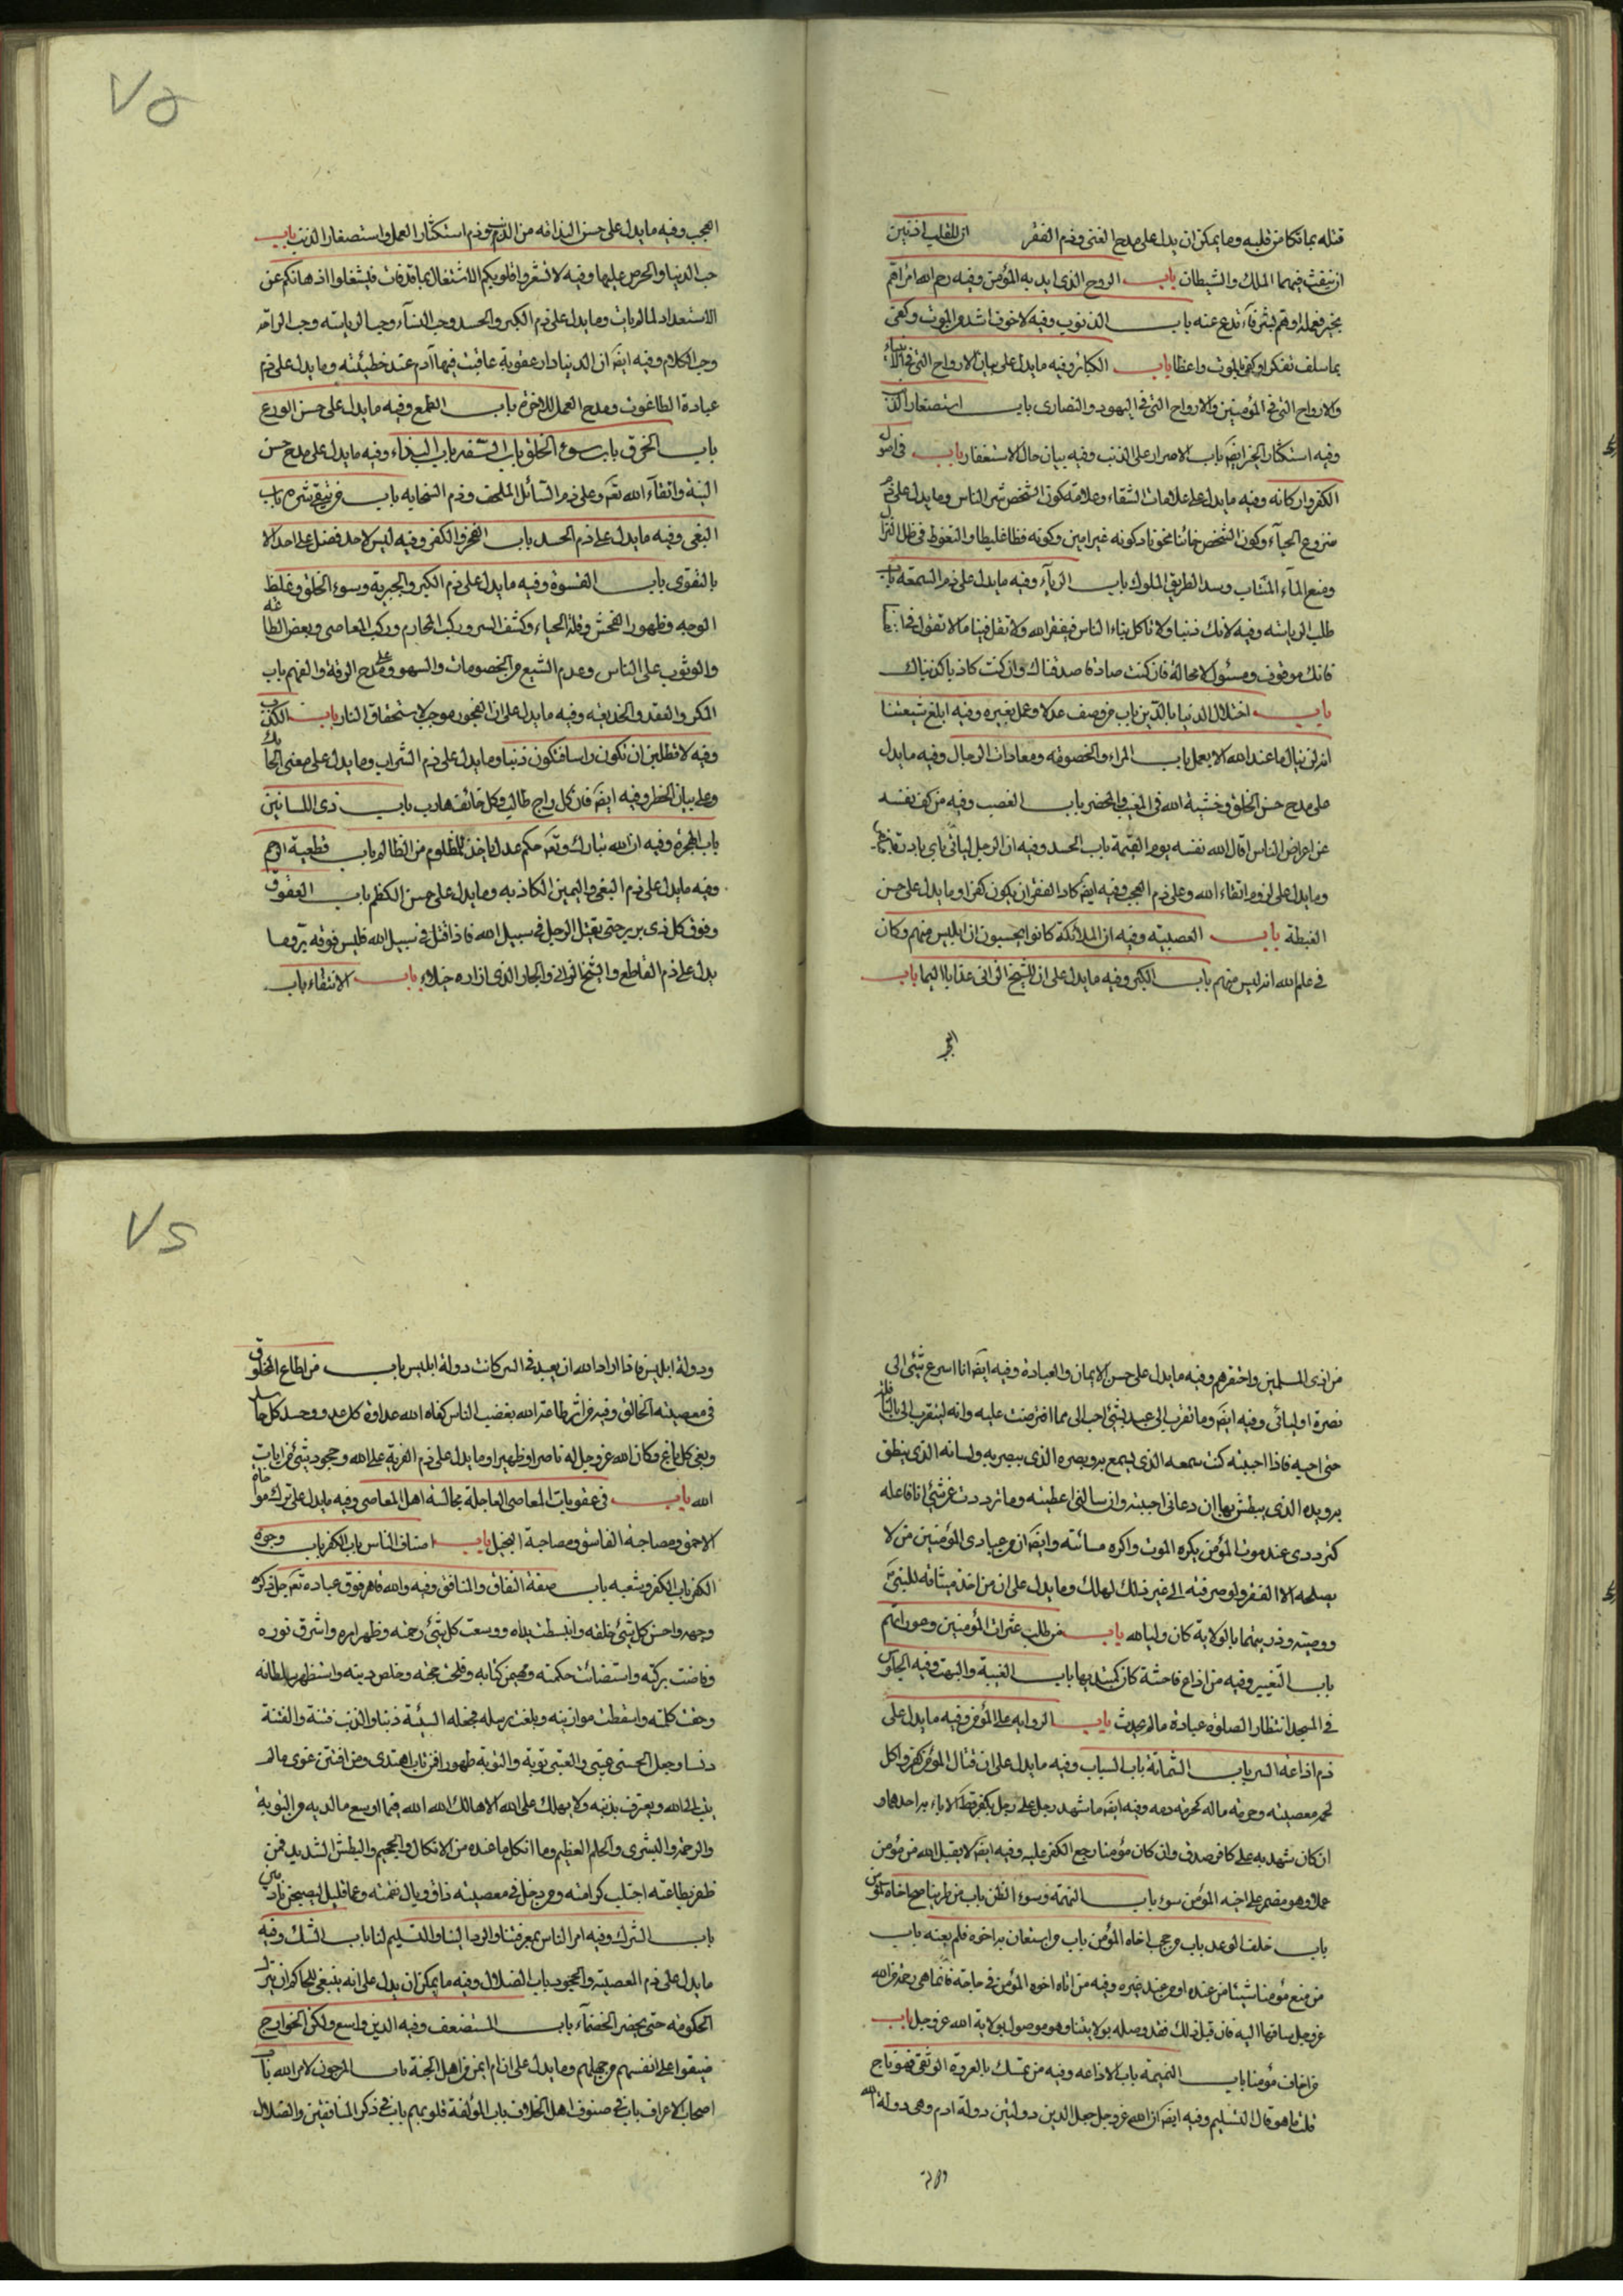 قتله بما نكا من قلبه وما يمكن ان يدل على مدح الغنى وذم الفقر ان للقلب اذنين
ان ينفث فيهما الملك والشيطان باب الروح الذي ايد به المؤمن وفيه رحم الله امرأ هم
بخير فعمله او هم بشر فارتدع عنه باب الذنوب وفيه لا خوف اشد من الموت وكفى
بما سلف تفكرا وكفى بالموت واعظا باب الكبائر وفيه ما يدل على بيان الارواح التي في الانبياء
والارواح التي في المؤمنين والارواح التي في اليهود والنصارى باب استصغار الذنب
وفيه استكثار الخير ايضا باب الاصرار على الذنب وفيه بيان حال الاستغفار باب في اصول
الكفر واركانه وفيه ما يدل على علامات الشقاء وعلامة كون الشخص شر الناس وما يدل على ذم
منزوع الحياء وكون الشخص خائنا مخونا وكونه غير امين وكونه فظا غليظا والتغوط في ظل النزال
ومنع الماء المنتاب وسد الطريق المسلوك باب الرياء وفيه ما يدل على ذم السمعة باب
طلب الرياسة وفيه لا تك ذنبا ولا تاكل بناء الناس فيفقرك الله ولا تقل فينا ما لا نقول في انفسنا
فانك موقوف ومسئول لا محالة فان كنت صادقا صدقناك وان كنت كاذبا كذبناك
باب اختلال الدنيا بالدين باب من وصف عدلا وعمل بغيره وفيه ابلغ شيعتنا
انه لن ينال ما عند الله الا بعمل باب المراء والخصومة ومعادات الرجال وفيه ما يدل
على مدح حسن الخلق وخشية الله في المغيب والمحضر باب الغضب وفيه من كف نفسه
عن اعراض الناس اقال الله نفسه يوم القيمة باب الحسد وفيه ان الرجل لياتي باي بادرة
وما يدل على لزوم اتقاء الله وعلى ذم العجب وفيه ايضا كاد الفقر ان يكون كفرا وما يدل على حسن
الغبطة باب العصبية وفيه ان الملائكة كانوا يحسبون ان ابليس منهم وكان
في علم الله انه ليس منهم باب الكبر وفيه ما يدل على ان للشيخ الزاني عذابا اليما باب
العجب
العجب وفيه ما يدل على حسن الندامة من الذنب وذم استكثار العمل واستصغار الذنب باب
حب الدنيا والحرص عليها وفيه لا تشعروا قلوبكم الاشتغال بما قد فات فتشغلوا اذهانكم عن
الاستعداد لما لم يات وما يدل على ذم الكبر والحسد وحب النساء وحب الرياسة وحب الراحة
وحب الكلام وفيه ايضا ان الدنيا دار عقوبة عاقبت فيها آدم عند خطيئته وما يدل على ذم
عبادة الطاغوت ومدح العمل للاخرة باب الطمع وفيه ما يدل على حسن الورع
باب الخرق باب سوء الخلق باب السفه باب البذاء وفيه ما يدل على مدح حسن
النية واتقاء الله تعالى وعلى ذم السائل الملحف وذم السخابه باب من يتقى شره باب
البغي وفيه ما يدل على ذم الحسد باب الفخر والكفر وفيه ليس لاحد فضل على احد الا
بالتقوى باب القسوة وفيه ما يدل على ذم الكبر والجبرية وسوء الخلق وغلظ
الوجه وظهور الفحش وقلة الحياء وكشف الستر وركب المحارم وركب المعاصي وبغض الطاعة
والوثوب على الناس وعدم الشبع من الخصومات والسهو وعلى مدح الرقة والفهم باب
المكر والغدر والخديعة وفيه ما يدل على ان الفجور موجب لاستحقاق النار باب الكذب
وفيه لا تطلبن ان تكون راسا فتكون ذنبا وما يدل على ذم الشراب وما يدل على معنى الحانك
وعلى بيان الخطر وفيه ايضا فان كل راج طالب وكل خائف هارب باب ذى اللسانين
باب الهجرة وفيه ان الله تبارك وتعالى حكم عدل ياخذ للمظلوم من الظالم باب قطيعة الرحم
وفيه ما يدل على ذم البغي واليمين الكاذبه وما يدل على حسن الكظم باب العقوق
وفوق كل ذي بر بر حتى يقتل الرجل في سبيل الله فاذا قتل في سبيل الله فليس فوقه بر وما
يدل على ذم القاطع والشيخ الزاني والجار الذي ازاره خيلاء باب الانتفاء باب
من اذى المسلمين واحتقرهم وفيه ما يدل على حسن الايمان والعبادة وفيه ايضا انا اسرع شئ الى
نصرة اوليائي وفيه ايضا وما تقرب الى عبد بشئ احب الى مما افترضت عليه وانه ليتقرب الى بالنافلة
حتى احبه فاذا احببته كنت سمعه الذي يسمع به وبصره الذي يبصر به ولسانه الذي ينطق
به ويده الذي يبطش بها ان دعاني اجبته وان سالني اعطيته وما ترددت عن شئ انا فاعله
كترددى عند موت المؤمن يكره الموت واكره مسائته وايضا ان من عبادي المؤمنين من لا
يصلحه الا الفقر ولو صرفته الى غير ذلك لهلك وما يدل على ان من اخذ ميثاقه للنبي
ووصيته وذريتهما بالولاية كان وليا لله باب من طلب عثرات المؤمنين وعوراتهم
باب التعيير وفيه من اذاع فاحشة كان كمبتديها باب الغيبة والبهت وفيه الجلوس
في المسجد انتظار الصلوة عبادة ما لم يحدث باب الرواية على المؤمن وفيه ما يدل على
ذم اذاعة السر باب الشماتة باب السباب وفيه ما يدل على ان قتال المؤمن كفر واكل
لحمه معصيته وحرمة ماله كحرمة دمه وفيه ايضا ما شهد رجل على رجل بكفر قط الا باء به احدهما و
ان كان شهد به على كافر صدق وان كان مؤمنا رجع الكفر عليه وفيه ايضا لا يقبل الله من مؤمن
عملا وهو مضمر على اخيه المؤمن سوء باب التهمة وسوء الظن باب من لم يناصح اخاه المؤمن
باب خلف الوعد باب من حجب اخاه المؤمن باب من استعان به اخوه فلم يعنه باب
من منع مؤمنا شيئا من عنده او من عند غيره وفيه من اتاه اخوه المؤمن في حاجة فانما هي رحمة من الله
عز وجل ساقها اليه فان قبل ذلك فقد وصله بولايتنا وهو موصول بولاية الله عز وجل باب
من اخاف مؤمنا باب النميمة باب الاذاعه وفيه من تمسك بالعروة الوثقى فهو ناج
قلت ما هو قال التسليم وفيه ايضا ان الله عز وجل جعل الدين دولتين دولة ادم وهي دولة الله
ودولة
ودولة ابليس فاذا اراد الله ان يعبد في السر كانت دولة ابليس باب من اطاع المخلوق
في معصية الخالق وفيه من اثر طاعة الله بغضب الناس كفاه الله عداوة كل عدو وحسد كل حاسد
وبغي كل باغ وكان الله عز وجل له ناصرا وظهيرا وما يدل على ذم الفرية على الله وجحود شئ من ايات
الله باب في عقوبات المعاصي العاجلة مجالسة اهل المعاصي وفيه ما يدل على ترك مواخاة
الاحمق ومصاحبة الفاسق ومصاحبة البخيل باب اصناف الناس باب الكفر باب وجوه
الكفر باب الكفر وشعبه باب صفة النفاق والمنافق وفيه والله قاهر فوق عباده تعالى جل ذكره
وجهه واحسن كل شئ خلقه وانبسطت يداه ووسعت كل شئ رحمته وظهر امره واشرق نوره
وفاضت بركته واستضائت حكمته وهيمن كتابه وفلجت حجته وخلص دينه واستظهر سلطانه
وحقت كلمته واقسطت موازينه وبلغت رسله فجعل السيئة ذنبا والذنب فتنة والفتنة
دنسا وجعل الحسنى عتبى والعتبى توبة والتوبة طهورا فمن تاب اهتدى ومن افتتن غوى ما لم
يتب الى الله ويعترف بذنبه ولا يهلك على الله الا هالك الله الله فما اوسع ما لديه من التوبة
والرحمة والبشرى والحلم العظيم وما انكل ما عنده من الانكال والجحيم والبطش الشديد فمن
ظفر بطاعته اجتلب كرامته ومن دخل في معصيته ذاق وبال نقمته وعما قليل ليصبحن نادمين
باب الشرك وفيه امر الناس بمعرفتنا والرد الينا والتسليم لنا باب الشك وفيه
ما يدل على ذم المعصية والجحود باب الضلال وفيه ما يمكن ان يدل على انه ينبغي للحاكم ان يترك
الحكومة حتى يحضر الخصماء باب المستضعف وفيه الدين واسع ولكن الخوارج
ضيقوا على انفسهم من جهلهم وما يدل على ان ام ايمن من اهل الجنة باب المرجون لامر الله باب
اصحاب الاعراف باب في صنوف اهل الخلاف باب المؤلفة قلوبهم باب في ذكر المنافقين والضلال
٧٥
٧٦